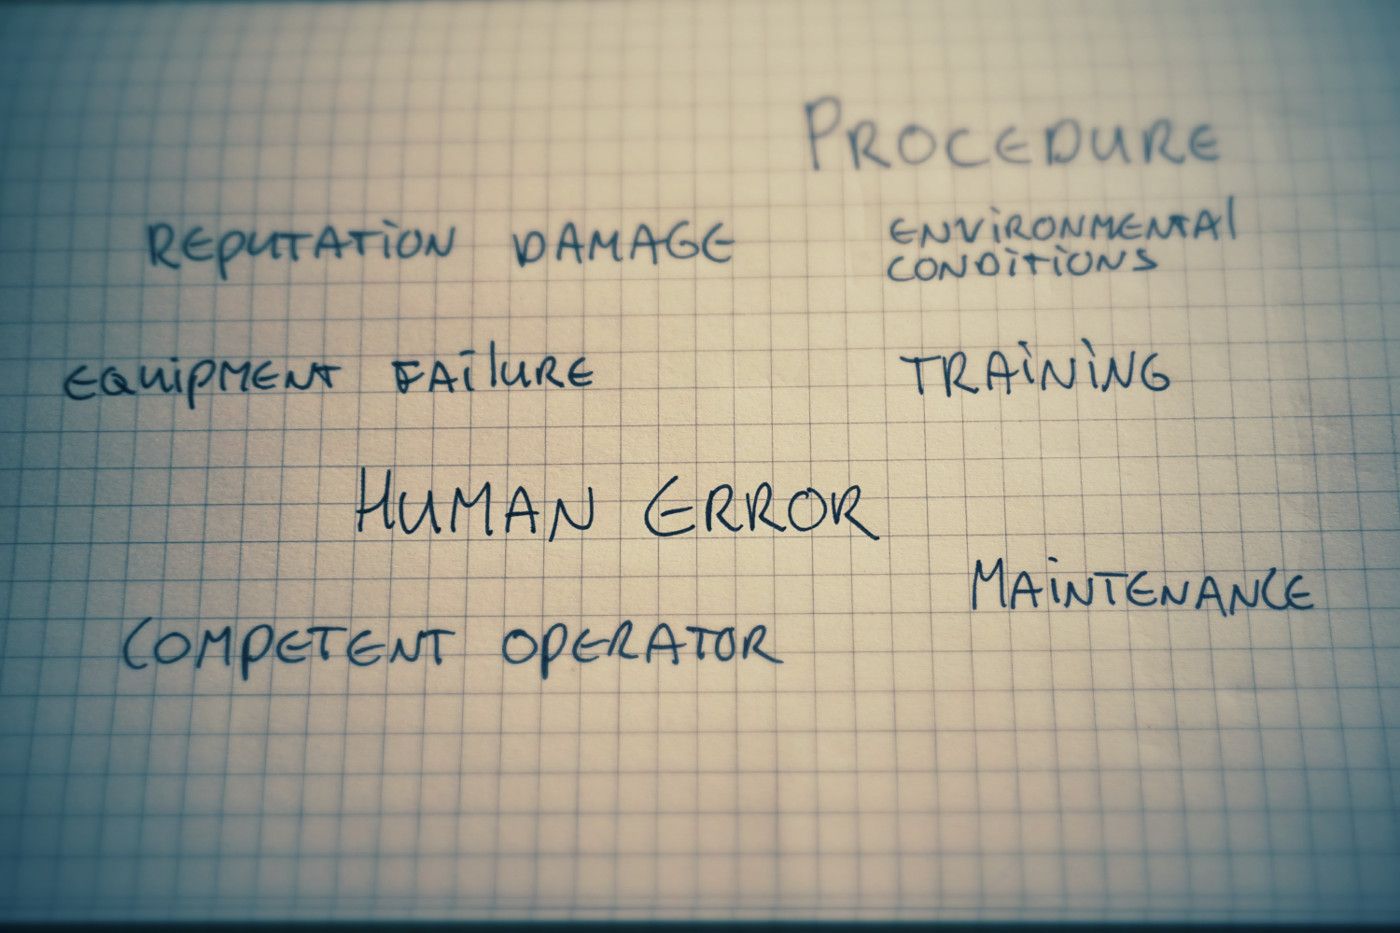 PROCEDURE
REPUTATION DAMAGE
ENVIRONMENTAL
CONDITIONS
EQUIPMENT FAILURE
TRAINING
HUMAN ERROR
MAINTENANCE
COMPETENT OPERATOR